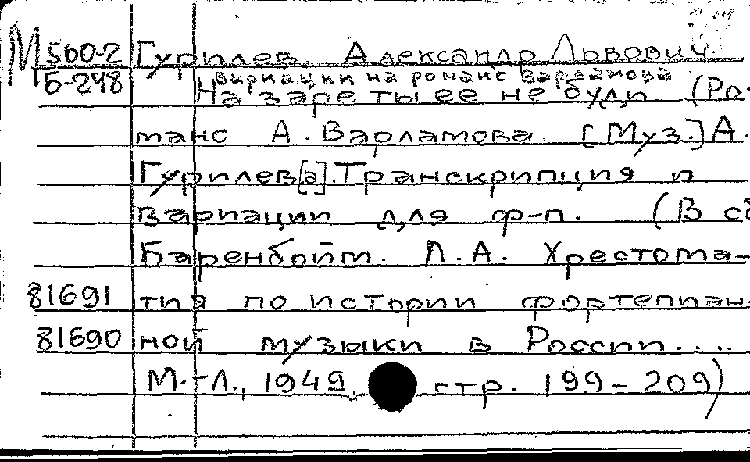 М 560-2 Гурилев, Александр Львович.
Б-248 вариации на романс Варламова
На заре ты ее не буди (Ро-
манс А. Варламова. [Муз.] А.
Гурилев[а]. Транскрипция и
вариации для ф-п. (В сб
Баренбойм. Л.А. Хрестома-
81691 тия по истории фортепиан
81690 ной музыки в России....
М.-Л., 1949, стр. 199-209)